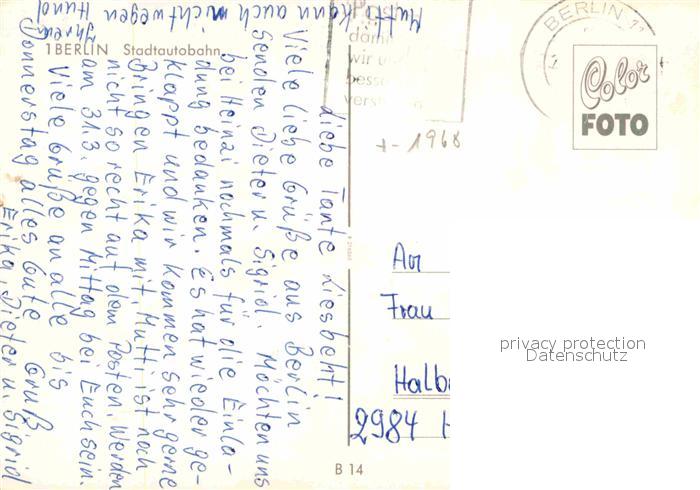 Liebe Tante Liesbeht!
Viele liebe Grüße aus Berlin
senden Dieter u. Sigrid. Möchten uns
bei Heinzi nochmals für die Einla-
dung bedanken. Es hat wieder ge-
klappt und wir kommen sehr gerne
Bringen Erika mit. Mutti ist noch
nicht so recht auf dem Posten. Werden
am 31.3. gegen Mittag bei Euch sein.
Viele Grüße an alle bis
Donnerstag alles Gute Gruß
Erika, Dieter u. Sigrid
Mutti kann auch nicht wegen
Ihrem Hund
1 BERLIN Stadtautobahn
BERLIN 11
Color
FOTO
+- 1968
An
Frau
Halb
2984 H
B 14
privacy protection
Datenschutz